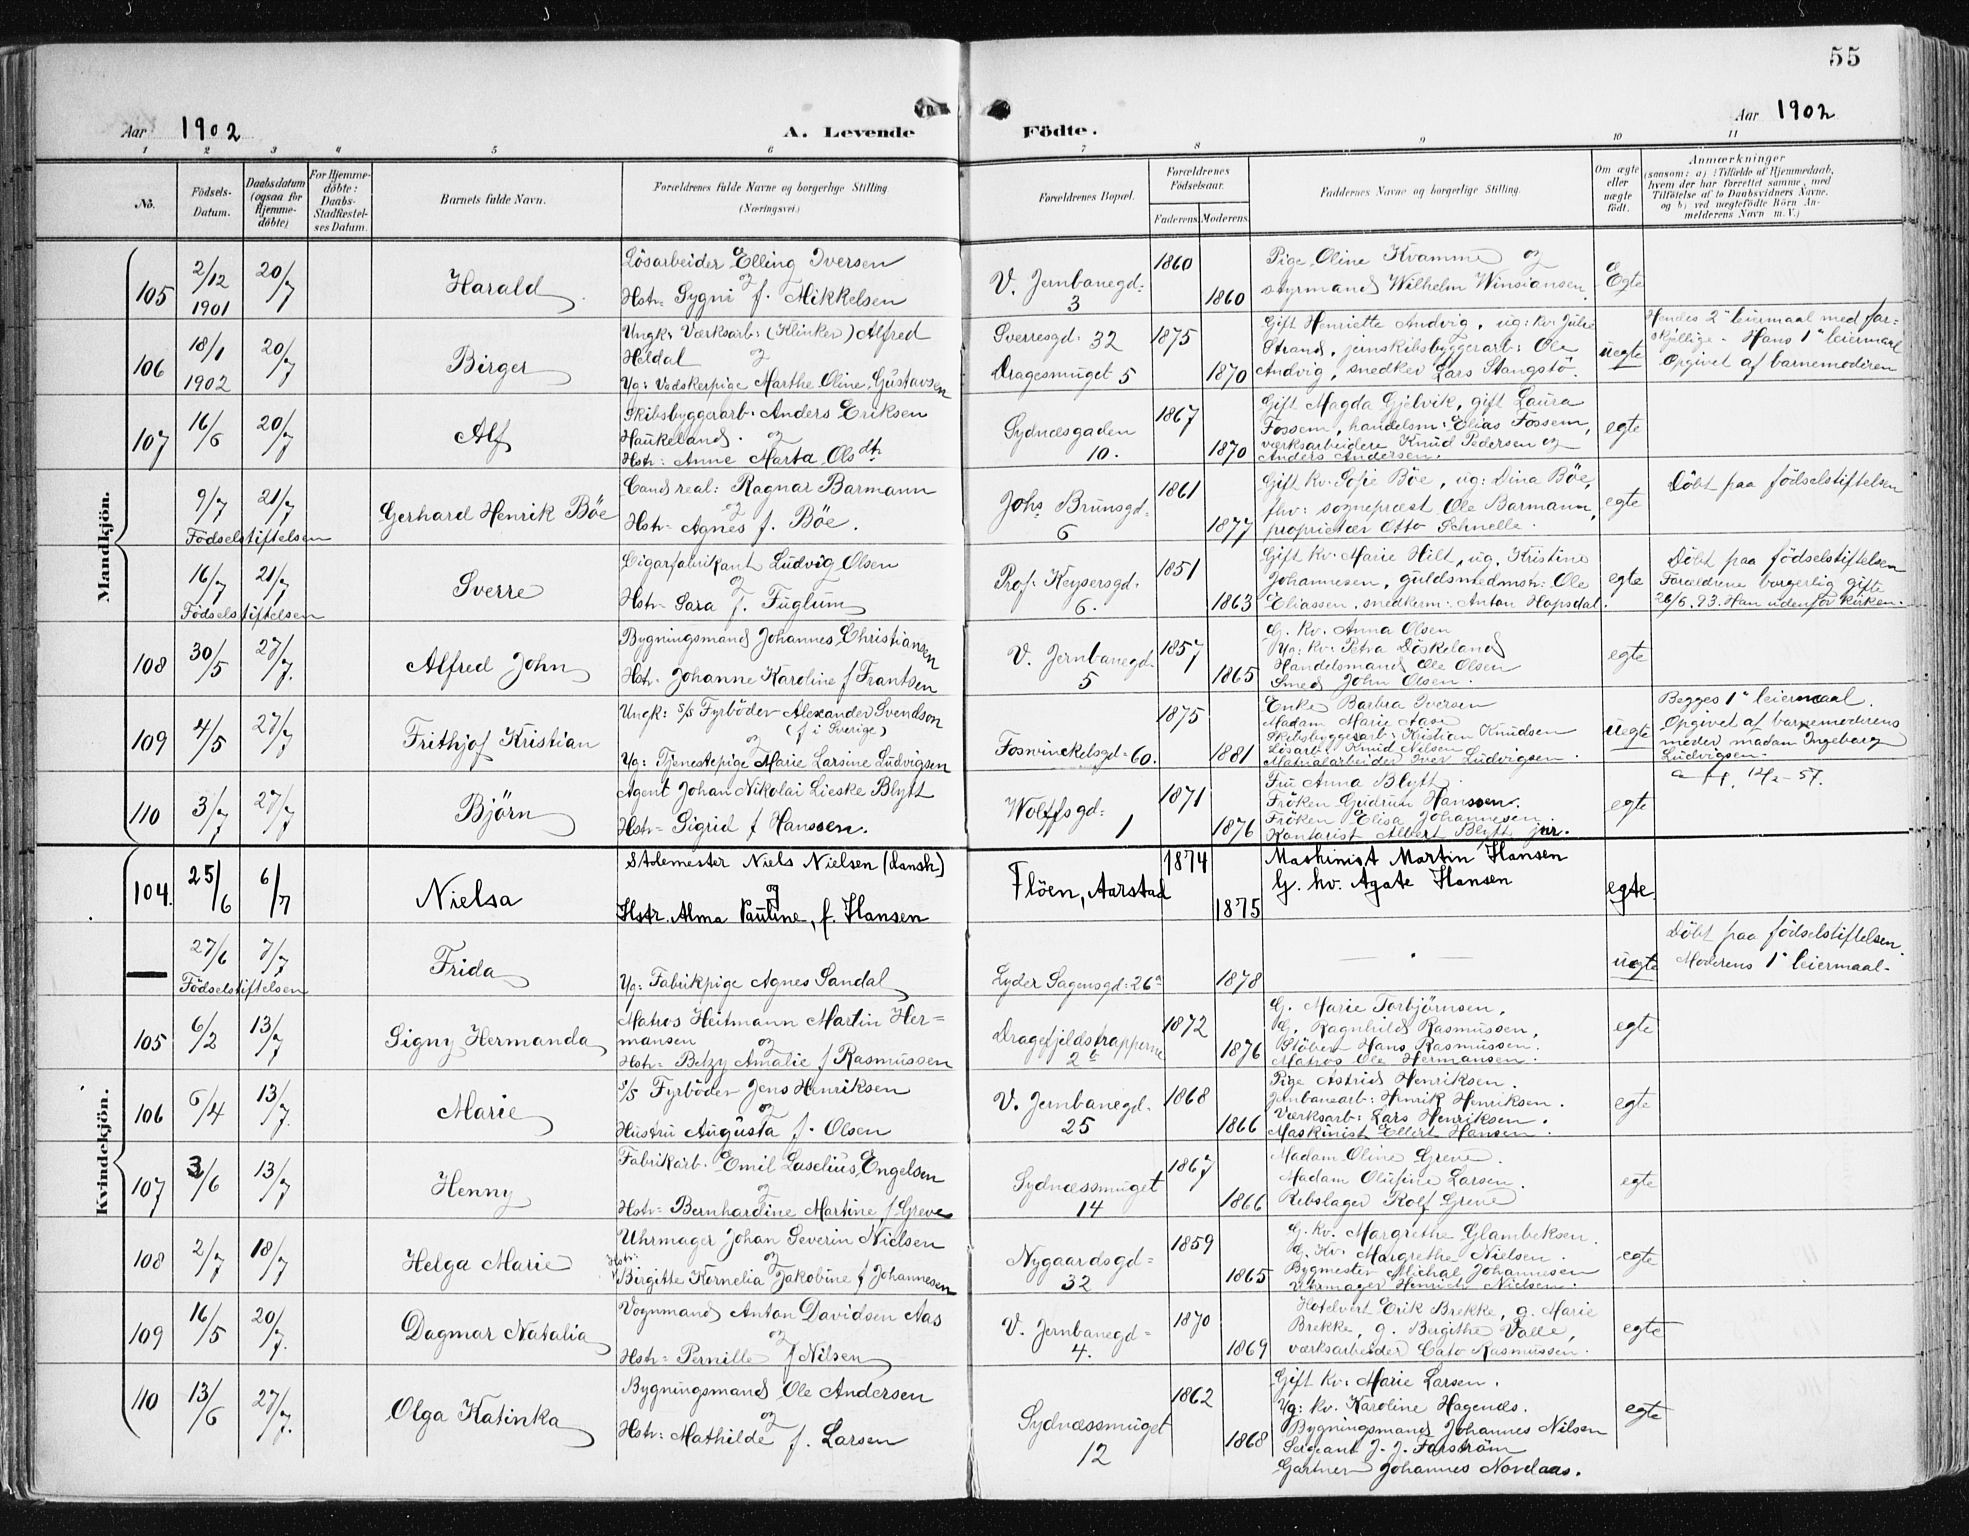 55
Aar 1902
A. Levende Födte.
Aar 1902
1 2 3 4 5 6 7 8 9 10 11
No.
Födsels-Datum.
Daabsdatum (ogsaa for Hjemme-döbte)
For Hjemme-döbte: Daabs-Stadfæstel-ses Datum.
Barnets fulde Navn.
Forældrenes fulde Navne og borgerlige Stilling. (Næringsvei.)
Forældrenes Bopæl.
Forældrenes Födselsaar.
Faderens. Moderens.
Faddernes Navne og borgerlige Stilling.
Om ægte eller uægte födt.
Anmærkninger
(saasom: a) i Tilfælde af Hjemmedaab, hvem der har forrettet samme, med Tilföielse af to Daabsvidners Navne, og b) ved uægtefödte Börn An-melderens Navn m. V.)
Mandkjön.
105 2/12 1901 20/7 Harald
Lösarbeider Elling Iversen
og
Hstr: Sygni f. Mikkelsen
V. Jernbanegd: 3
1860 1860
Pige Oline Kvamme og
styrmand Wilhelm Winsiansen
Egte
106 18/1 1902 20/7 Birger
Ungk: Værksarb: (Klinker) Alfred
Heldal og
Ug: Vadskerpige Marthe Oline Gustavsen
Sverresgd: 32
Dragesmuget 5
1875 1870
Gift Henriette Andvig, ug: kv: Julie
Strand, jernskibsbyggerarb: Ole
Andvig, snedker Lars Stangstö.
uegte
Hendes 2' leiermaal med for-
skjellige - Hans 1' leiermaal
Opgivet af barnemoderen
107 16/6 20/7 Alf
Skibsbyggerarb: Anders Eriksen
Haukeland. og
Hstr: Anne Marta Olsdtr
Sydnæsgaden 10.
1867 1870
Gift Magda Gjelvik, gift Laura
Fossem, handelsm: Elias Fossem,
værksarbeidere Knud Pedersen og
Anders Andersen.
egte
9/7 21/7 Födselstiftelsen
Gerhard Henrik Böe
Cand real: Ragnar Barmann
og
Hstr: Agnes f. Böe.
Johs Brunsgd: 6
1861 1877
Gift kv: Sofie Böe, ug: Dina Böe,
fhv: sogneprest Ole Barmann,
proprietær Otto Schnelle.
egte
Döbt paa födselstiftelsen
16/7 21/7 Födselstiftelsen
Sverre
Cigarfabrikant Ludvig Olsen
og
Hstr: Sara f. Fuglum
Prof. Keysersgd: 6.
1851 1863
Gift kv: Marie Hilt, ug. Kristine
Johannesen, guldsmedmstr: Ole
Eliassen, snedkerm: Anton Hopsdal.
egte
Döbt paa födselstiftelsen
Forældrene borgerlig gifte
26/6.93. Han udenfor kirken.
108 30/5 27/7. Alfred John
Bygningsmand Johannes Christiansen
Hstr: Johanne Karoline f Frantsen
V. Jernbanegd: 5
1857 1865
G. kv. Anna Olsen
Ug: kv: Petra Döskeland
Handelsmand Ole Olsen
Smed John Olsen.
egte
109 4/5 27/7 Frithjof Kristian
Ungk: s/s Fyrböder Alexander Svendson
(f i Sverige)
og
Ug: Tjenestepige Marie Larsine Ludvigsen
Foswinckelsgd: 60.
1875 1881
Enke Barbra Iversen
Madam Marie Aase
Skibsbyggerarb: Kristian Knudsen
Lösarb: Knud Nilsen
Matrialarbeider Iver Ludvigsen.
uegte
Begges 1' leiermaal.
Opgivet af barnemoderens
moder madam Ingeborg
Ludvigsen
110 3/7 27/7 Björn
Agent Johan Nikolai Lieske Blytt
Hstr: Sigrid f Hanssen.
Wolffsgd: 1
1871 1876
Fru Anna Blytt.
Fröken Gudrun Hanssen.
Fröken Elisa Johannesen.
Kontorist Albert Blytt jnr.
egte
Kvindekjön.
104. 25/6 6/7 Nielsa
Stolemester Niels Nielsen (dansk)
og
Hstr. Alma Pauline, f. Hansen
Flöen, Aarstad
1874 1875
Maskinist Martin Hansen
G. kv. Agate Hansen
egte.
— 27/6 7/7 Födselstiftelsen
Frida
Ug: Fabrikpige Agnes Sandal
Lyder Sagensgd: 26a
1878
uegte
Döbt paa födselstiftelsen
Moderens 1' leiermaal.
105 6/2 13/7 Signy Hermanda
Matros Heitmann Martin Her=
mansen og
Hstr: Betzy Amalie f Rasmussen
Dragefjeldstrapperne
1872 1876
G. Marie Torbjörnsen,
G. Ragnhild Rasmussen,
Stöber Hans Rasmussen.
Matros Ole Hermansen.
egte
106 6/4 13/7. Marie
s/s Fyrböder Jens Henriksen
og
Hustru Augusta f. Olsen
V. Jernbanegd. 25
1868 1866
Pige Astrid Henriksen.
Jernbanearb: Henrik Henriksen.
Værksarb: Lars Henriksen.
Maskinist Ellert Hansen.
egte
107 3/6 13/7 Henny
Fabrikarb. Emil Laselius Engelsen
og
Hstr: Bernhardine Martine f Greve
Sydnæssmuget 14
1867 1866
Madam Oline Greve.
Madam Olufine Larsen.
Rebslager Rolf Greve
egte
108 2/7 18/7 Helga Marie
Uhrmager Johan Severin Nielsen
Hstr: og
Birgitte Kornelia Jakobine f Johannesen
Nygaardsgd: 32
1859 1865
G. kv. Margrethe Glambeksen.
G. Kv. Margrethe Nielsen.
Bygmester Michal Johannesen
Uhrmager Henrich Nielsen.
egte
109 16/5 20/7. Dagmar Natalia
Vognmand Anton Davidsen Aas
og
Hstr: Pernille f Nilsen
V. Jernbanegd: 4.
1870 1869
Hotelvert Erik Brekke, g. Marie
Brekke, g. Bergithe Valle,
værksarbeider Cato Rasmussen.
egte
110 13/6 27/7. Olga Katinka
Bygningsmand Ole Andersen
og
Hstr: Mathilde f. Larsen
Sydnæssmuget 12
1862 1868
Gift kv: Marie Larsen.
Ug: kv. Karoline Hagends.
Bygningsmand Johannes Nilsen
Sergeant J. J. Farström
Gartner Johannes Nordaas.
egte